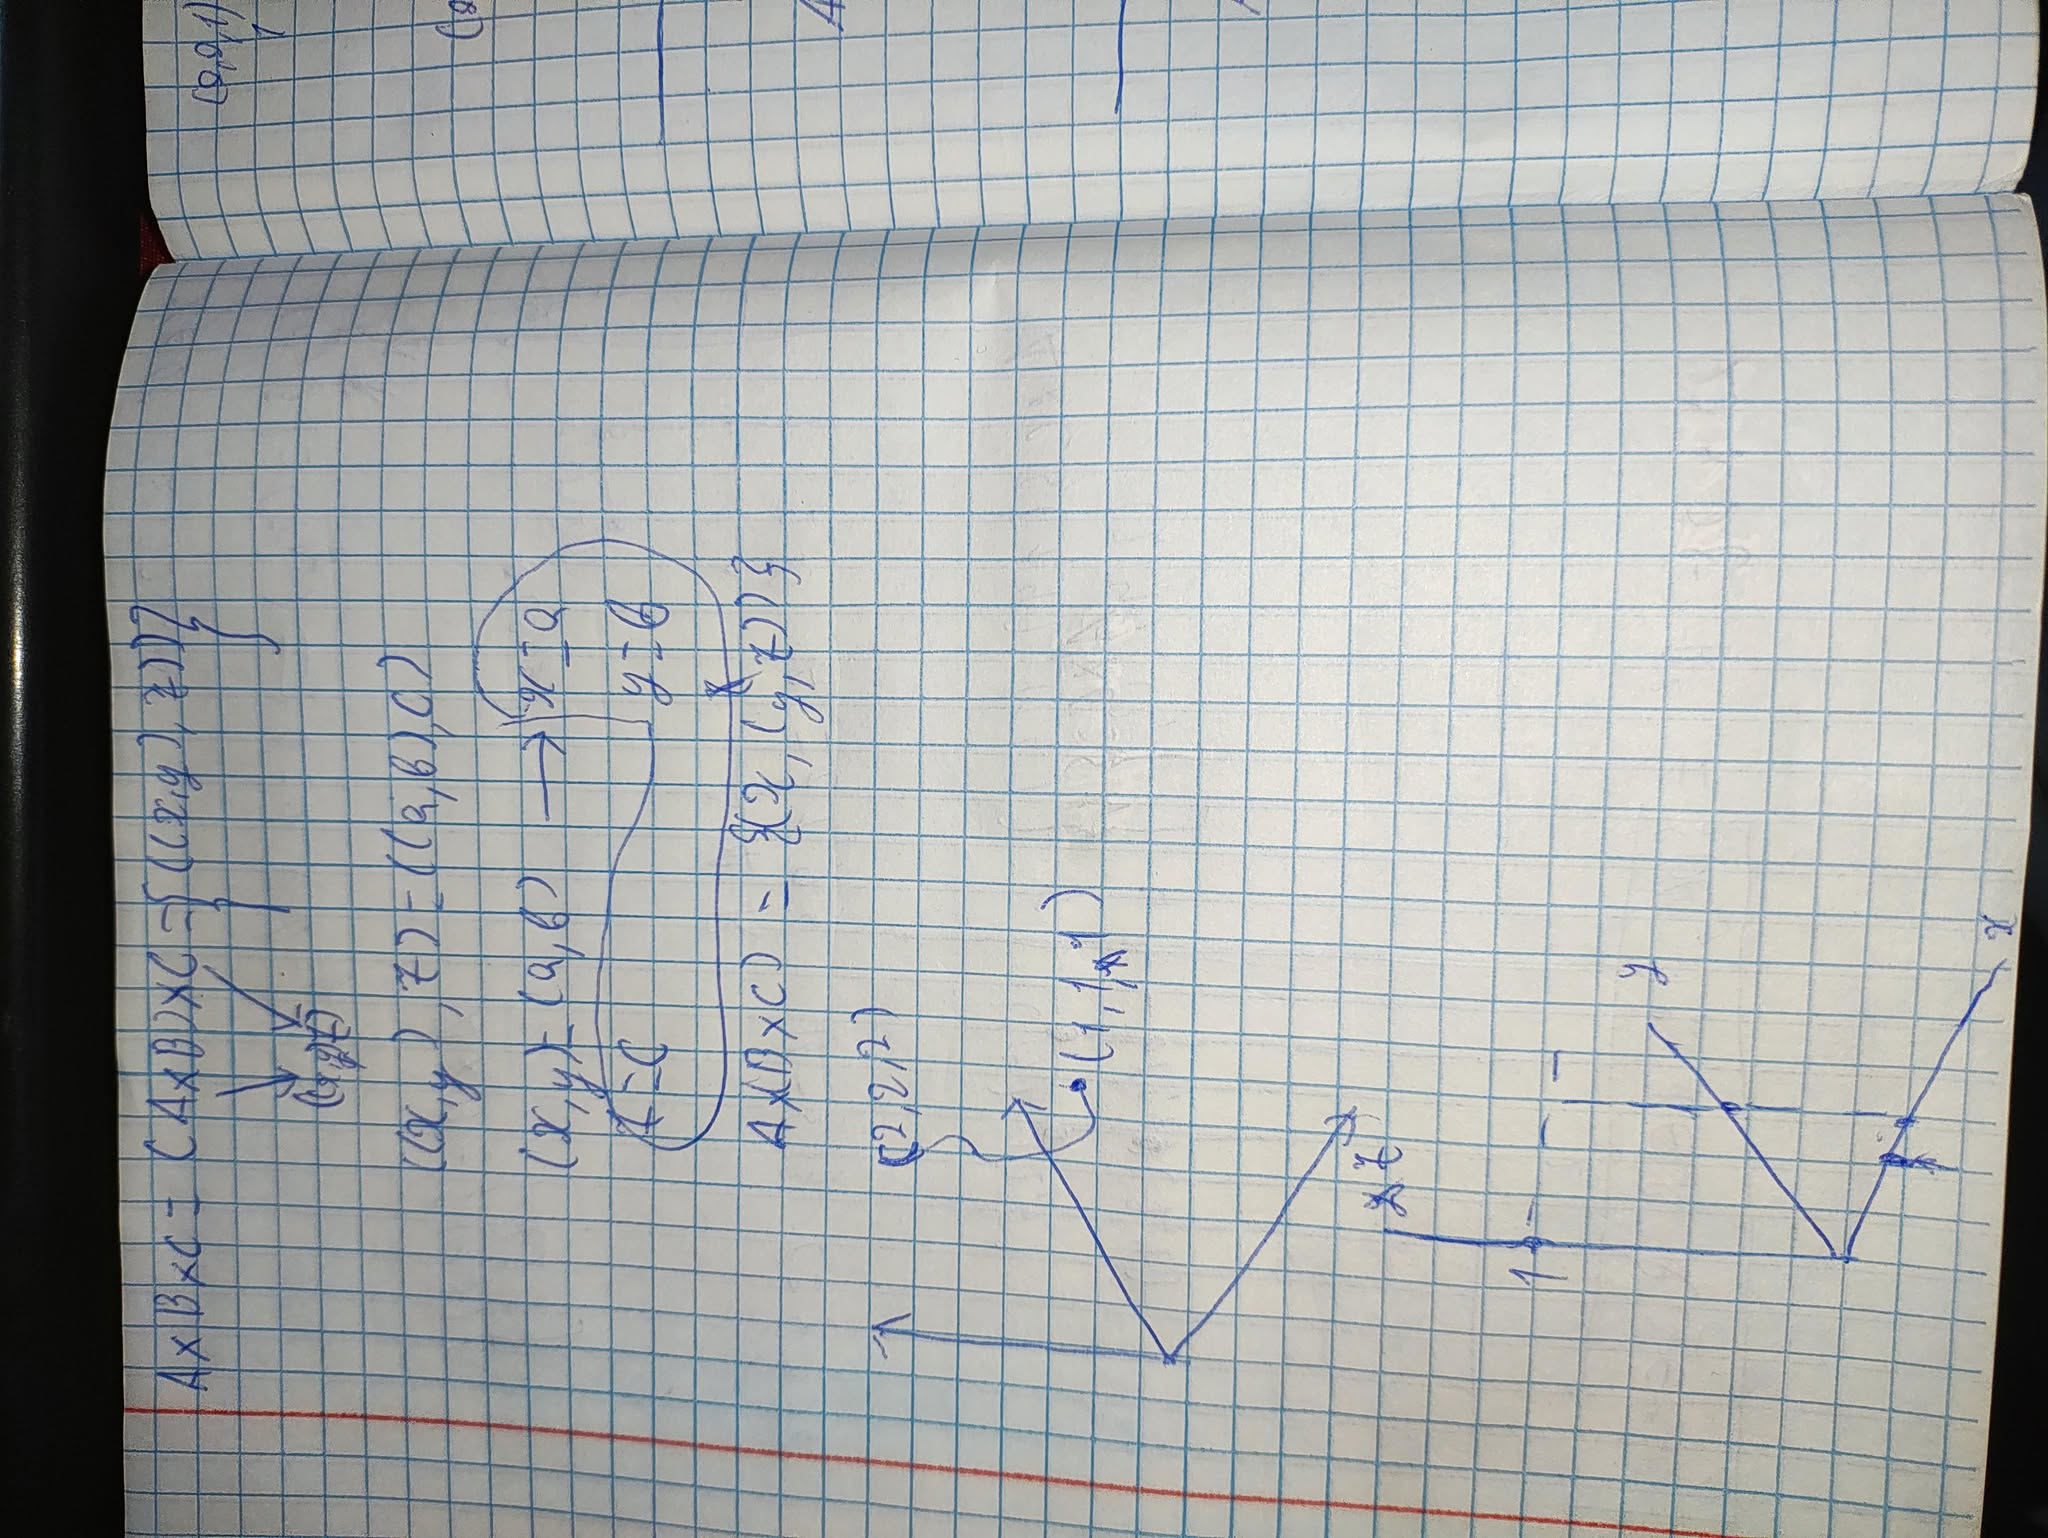 A×B×C = (A×B)×C = {((x,y),z)}
(x,y,z)
((x,y),z) = ((a,b),c)
(x,y) = (a,b) → x=a
z=c y=b
A×(B×C) = {(x,(y,z))}
(2,2,2)
(1,1,1)
z
1
y
x